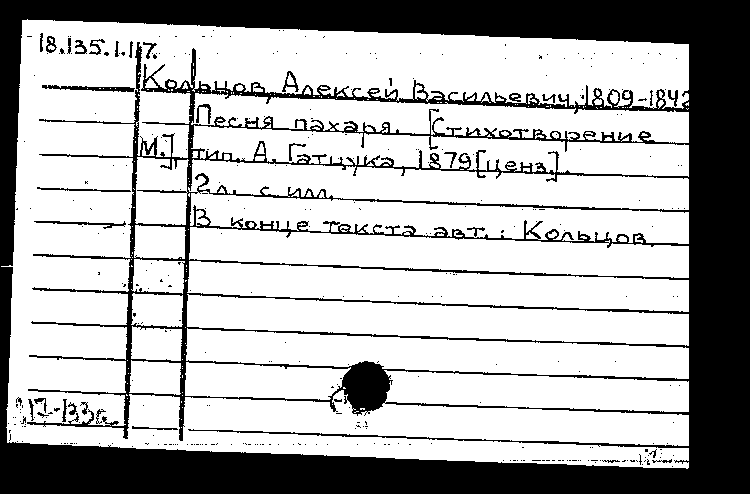 18.135.1.117.
Кольцов, Алексей Васильевич, 1809-1842
Песня пахаря. [Стихотворение
М.], тип. А. Гатцука, 1879 [ценз.].
2 л. с илл.
В конце текста авт.: Кольцов.
17-133а